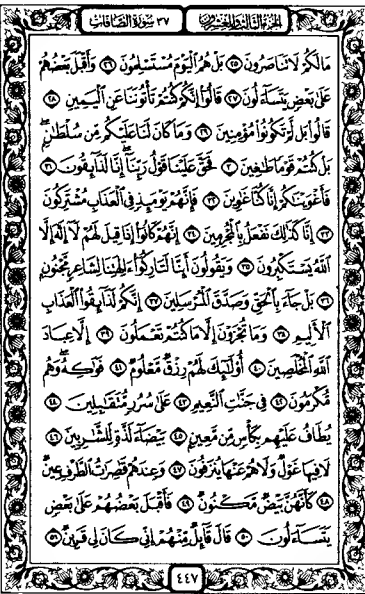 الجزء الثالث والعشرون ٣٧ سورة الصافات
مَالَكُمْ لَا تَنَاصَرُونَ ٢٥ بَلْ هُمُ الْيَوْمَ مُسْتَسْلِمُونَ ٢٦ وَأَقْبَلَ بَعْضُهُمْ
عَلَىٰ بَعْضٍ يَتَسَاءَلُونَ ٢٧ قَالُوا إِنَّكُمْ كُنْتُمْ تَأْتُونَنَا عَنِ الْيَمِينِ ٢٨
قَالُوا بَلْ لَمْ تَكُونُوا مُؤْمِنِينَ ٢٩ وَمَا كَانَ لَنَا عَلَيْكُمْ مِنْ سُلْطَانٍ
بَلْ كُنْتُمْ قَوْمًا طَاغِينَ ٣٠ فَحَقَّ عَلَيْنَا قَوْلُ رَبِّنَا إِنَّا لَذَائِقُونَ ٣١
فَأَغْوَيْنَاكُمْ إِنَّا كُنَّا غَاوِينَ ٣٢ فَإِنَّهُمْ يَوْمَئِذٍ فِي الْعَذَابِ مُشْتَرِكُونَ
٣٣ إِنَّا كَذَٰلِكَ نَفْعَلُ بِالْمُجْرِمِينَ ٣٤ إِنَّهُمْ كَانُوا إِذَا قِيلَ لَهُمْ لَا إِلَٰهَ إِلَّا
اللَّهُ يَسْتَكْبِرُونَ ٣٥ وَيَقُولُونَ أَئِنَّا لَتَارِكُو آلِهَتِنَا لِشَاعِرٍ مَجْنُونٍ
٣٦ بَلْ جَاءَ بِالْحَقِّ وَصَدَّقَ الْمُرْسَلِينَ ٣٧ إِنَّكُمْ لَذَائِقُو الْعَذَابِ
الْأَلِيمِ ٣٨ وَمَا تُجْزَوْنَ إِلَّا مَا كُنْتُمْ تَعْمَلُونَ ٣٩ إِلَّا عِبَادَ
اللَّهِ الْمُخْلَصِينَ ٤٠ أُولَٰئِكَ لَهُمْ رِزْقٌ مَعْلُومٌ ٤١ فَوَاكِهُ وَهُمْ
مُكْرَمُونَ ٤٢ فِي جَنَّاتِ النَّعِيمِ ٤٣ عَلَىٰ سُرُرٍ مُتَقَابِلِينَ ٤٤
يُطَافُ عَلَيْهِمْ بِكَأْسٍ مِنْ مَعِينٍ ٤٥ بَيْضَاءَ لَذَّةٍ لِلشَّارِبِينَ ٤٦
لَا فِيهَا غَوْلٌ وَلَا هُمْ عَنْهَا يُنْزَفُونَ ٤٧ وَعِنْدَهُمْ قَاصِرَاتُ الطَّرْفِ عِينٌ
٤٨ كَأَنَّهُنَّ بَيْضٌ مَكْنُونٌ ٤٩ فَأَقْبَلَ بَعْضُهُمْ عَلَىٰ بَعْضٍ
يَتَسَاءَلُونَ ٥٠ قَالَ قَائِلٌ مِنْهُمْ إِنِّي كَانَ لِي قَرِينٌ ٥١
٤٤٧